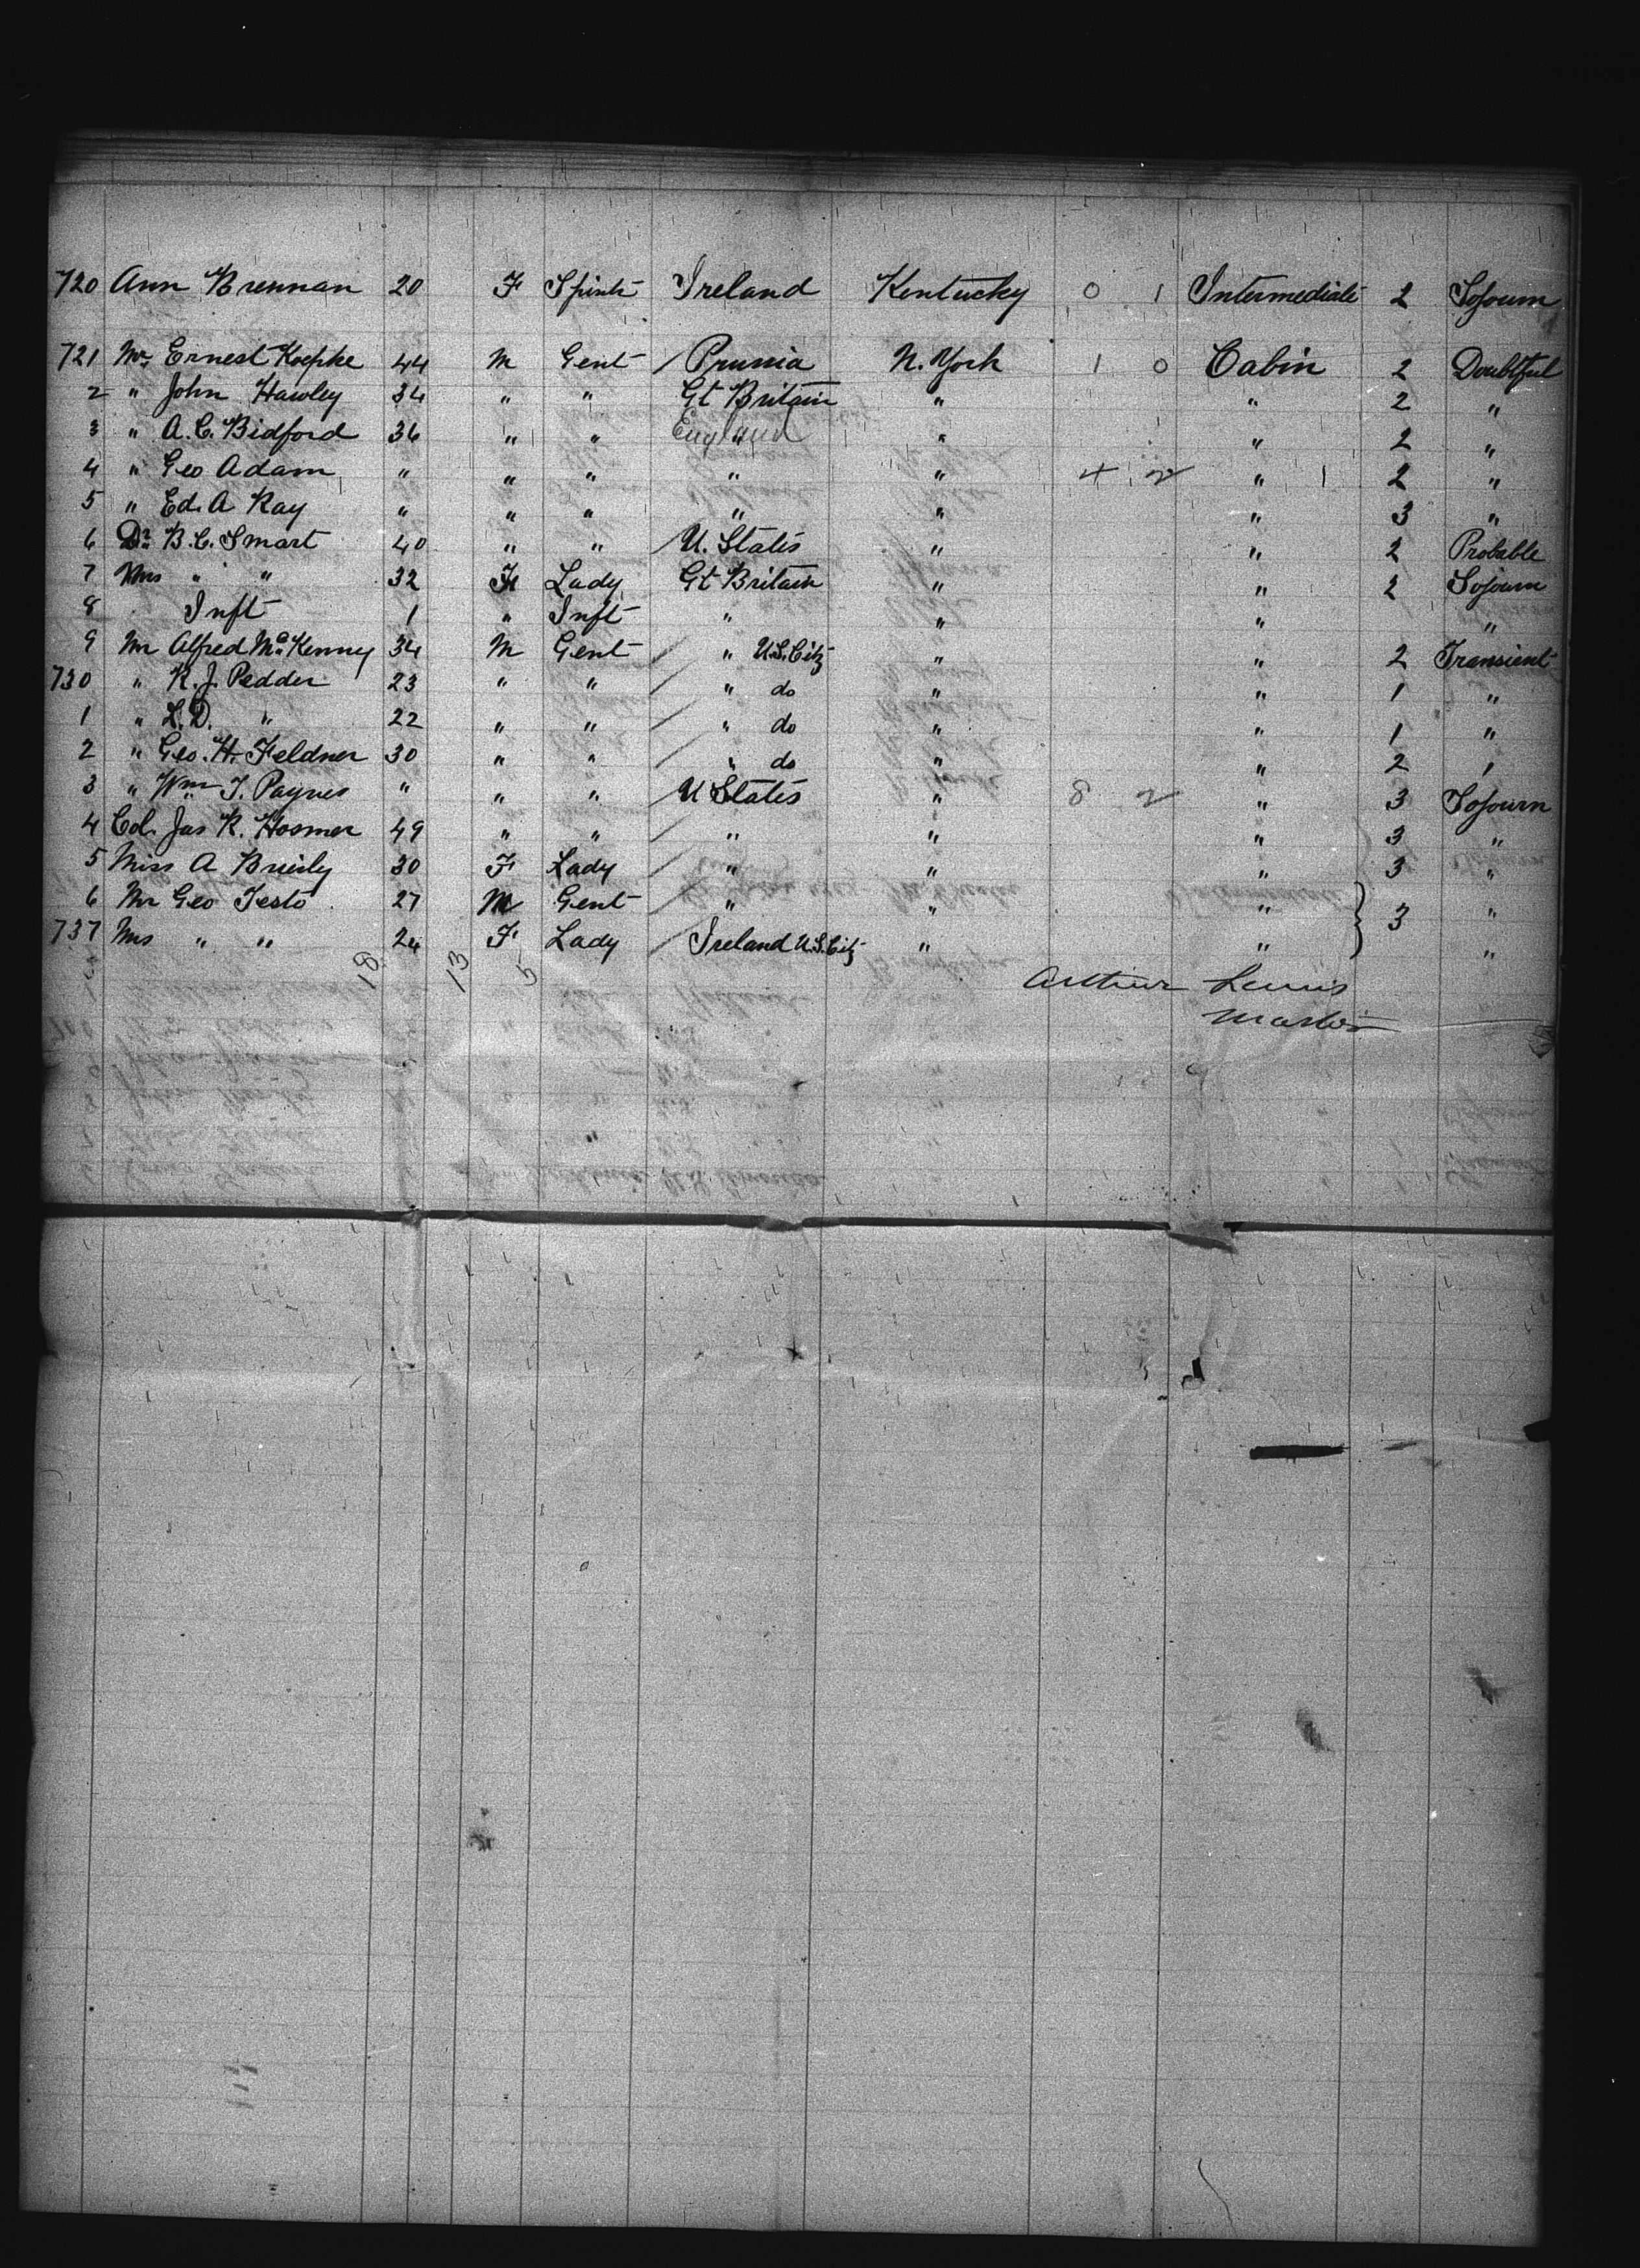 720 Ann Brennan 20 F Spinstr Ireland Kentucky 0 1 Intermediate 2 Sojourn
721 Mr Ernest Koepke 44 M Gent / Prussia N. York 1 0 Cabin 2 Doubtful
2 " John Hawley 34 " " Gt Britain " " 2 "
3 " A.C. Bidford 36 " " England " " 2 "
4 " Geo Adam " " " " " 4 2 " 2 "
5 " Ed. A Ray " " " " " " 3 "
6 Dr B.C. Smart 40 " " / U. States " " 2 Probable
7 Mrs " " 32 F Lady Gt Britain " " 2 Sojourn
8 Inft 1 " Inft " " " "
9 Mr Alfred McKenney 34 M Gent / " U.S. Citz " " 2 Transient
730 " R.J. Pedder 23 " " / " do " " 1 "
1 " L.D. " 22 " " / " do " " 1 "
2 " Geo. H. Feldner 30 " " / " do " " 2 "
3 " Wm T. Paynes " " " / U States " 8 2 " 3 Sojourn
4 Col. Jas R. Hosmer 49 " " / " " " 3 "
5 Miss A Brierly 30 F Lady / " " " 3 "
6 Mr Geo Testo 27 M Gent / " " " 3 "
737 Mrs " " 24 F Lady / Ireland U.S. Citz " " "
18 13 5
Arthur Lewis
Master